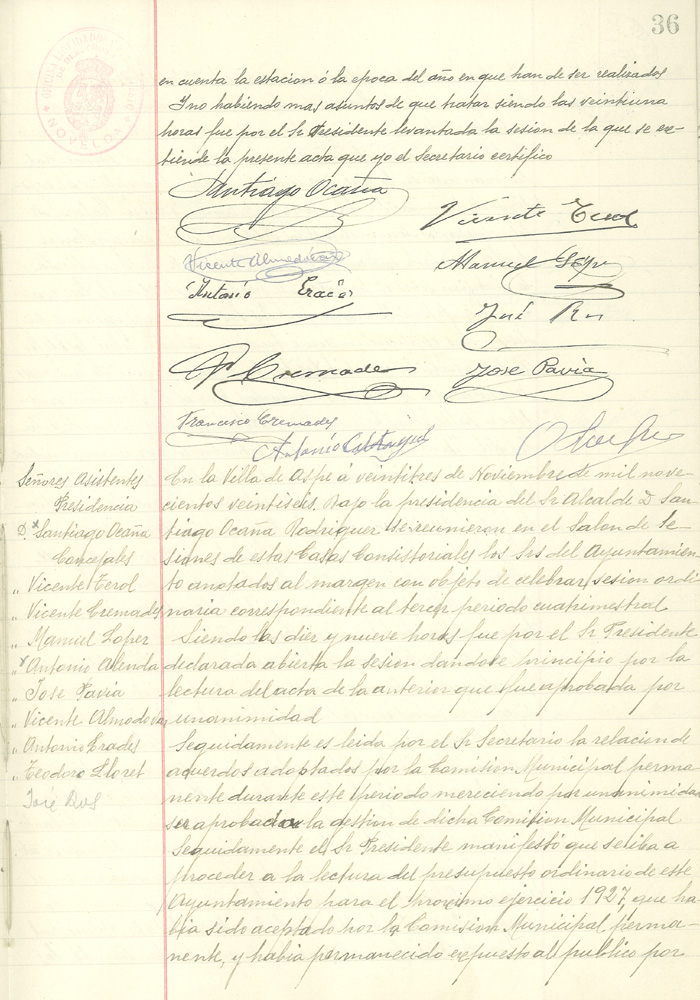 36
NOVELDA
en cuenta la estacion ó la epoca del año en que han de ser realizados
Y no habiendo mas asuntos de que tratar siendo las veintiuna
horas fue por el Sr Presidente levantada la sesion de la que se ex-
tiende la presente acta que yo el Secretario certifico
Santiago Ocaña
Vicente Terol
Vicente Almodóvar
Manuel
Antonio
José
Cremades
Jose Pavia
Francisco Cremades
Antonio
Señores Asistentes
Presidencia
D. Santiago Ocaña
Concejales
" Vicente Terol
" Vicente Cremades
" Manuel Lopez
" Antonio Alenda
" Jose Pavia
" Vicente Almodovar
" Antonio Erades
" Teodoro Lloret
José
En la Villa de Aspe á veintitres de Noviembre de mil nove-
cientos veintiseis. Bajo la presidencia del Sr Alcalde D. San-
tiago Ocaña Rodriguez se reunieron en el Salon de Se-
siones de estas Casas Consistoriales los Srs del Ayuntamien-
to anotados al margen con objeto de celebrar sesion ordi-
naria correspondiente al tercer periodo cuatrimestral
Siendo las diez y nueve horas fue por el Sr Presidente
declarada abierta la sesion dandose principio por la
lectura del acta de la anterior que fue aprobada por
unanimidad
Seguidamente es leida por el Sr Secretario la relacion de
acuerdos adoptados por la Comision Municipal perma-
nente durante este periodo mereciendo por unanimidad
ser aprobada la gestion de dicha Comision Municipal
Seguidamente el Sr Presidente manifestó que se iba a
proceder a la lectura del presupuesto ordinario de este
Ayuntamiento para el proximo ejercicio 1927, que ha-
bia sido aceptado por la Comision Municipal perma-
nente, y habia permanecido expuesto al publico por